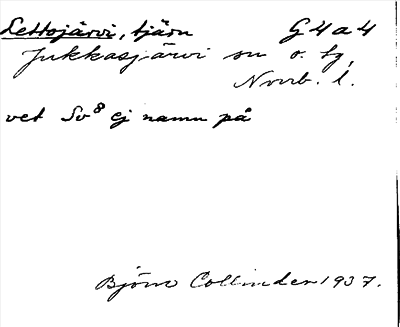 Lettojärvi, tjärn G4a4
Jukkasjärvi sn o. tg,
Norrb. l.
vet Sv⁸ ej namn på
Björn Collinder 1937.